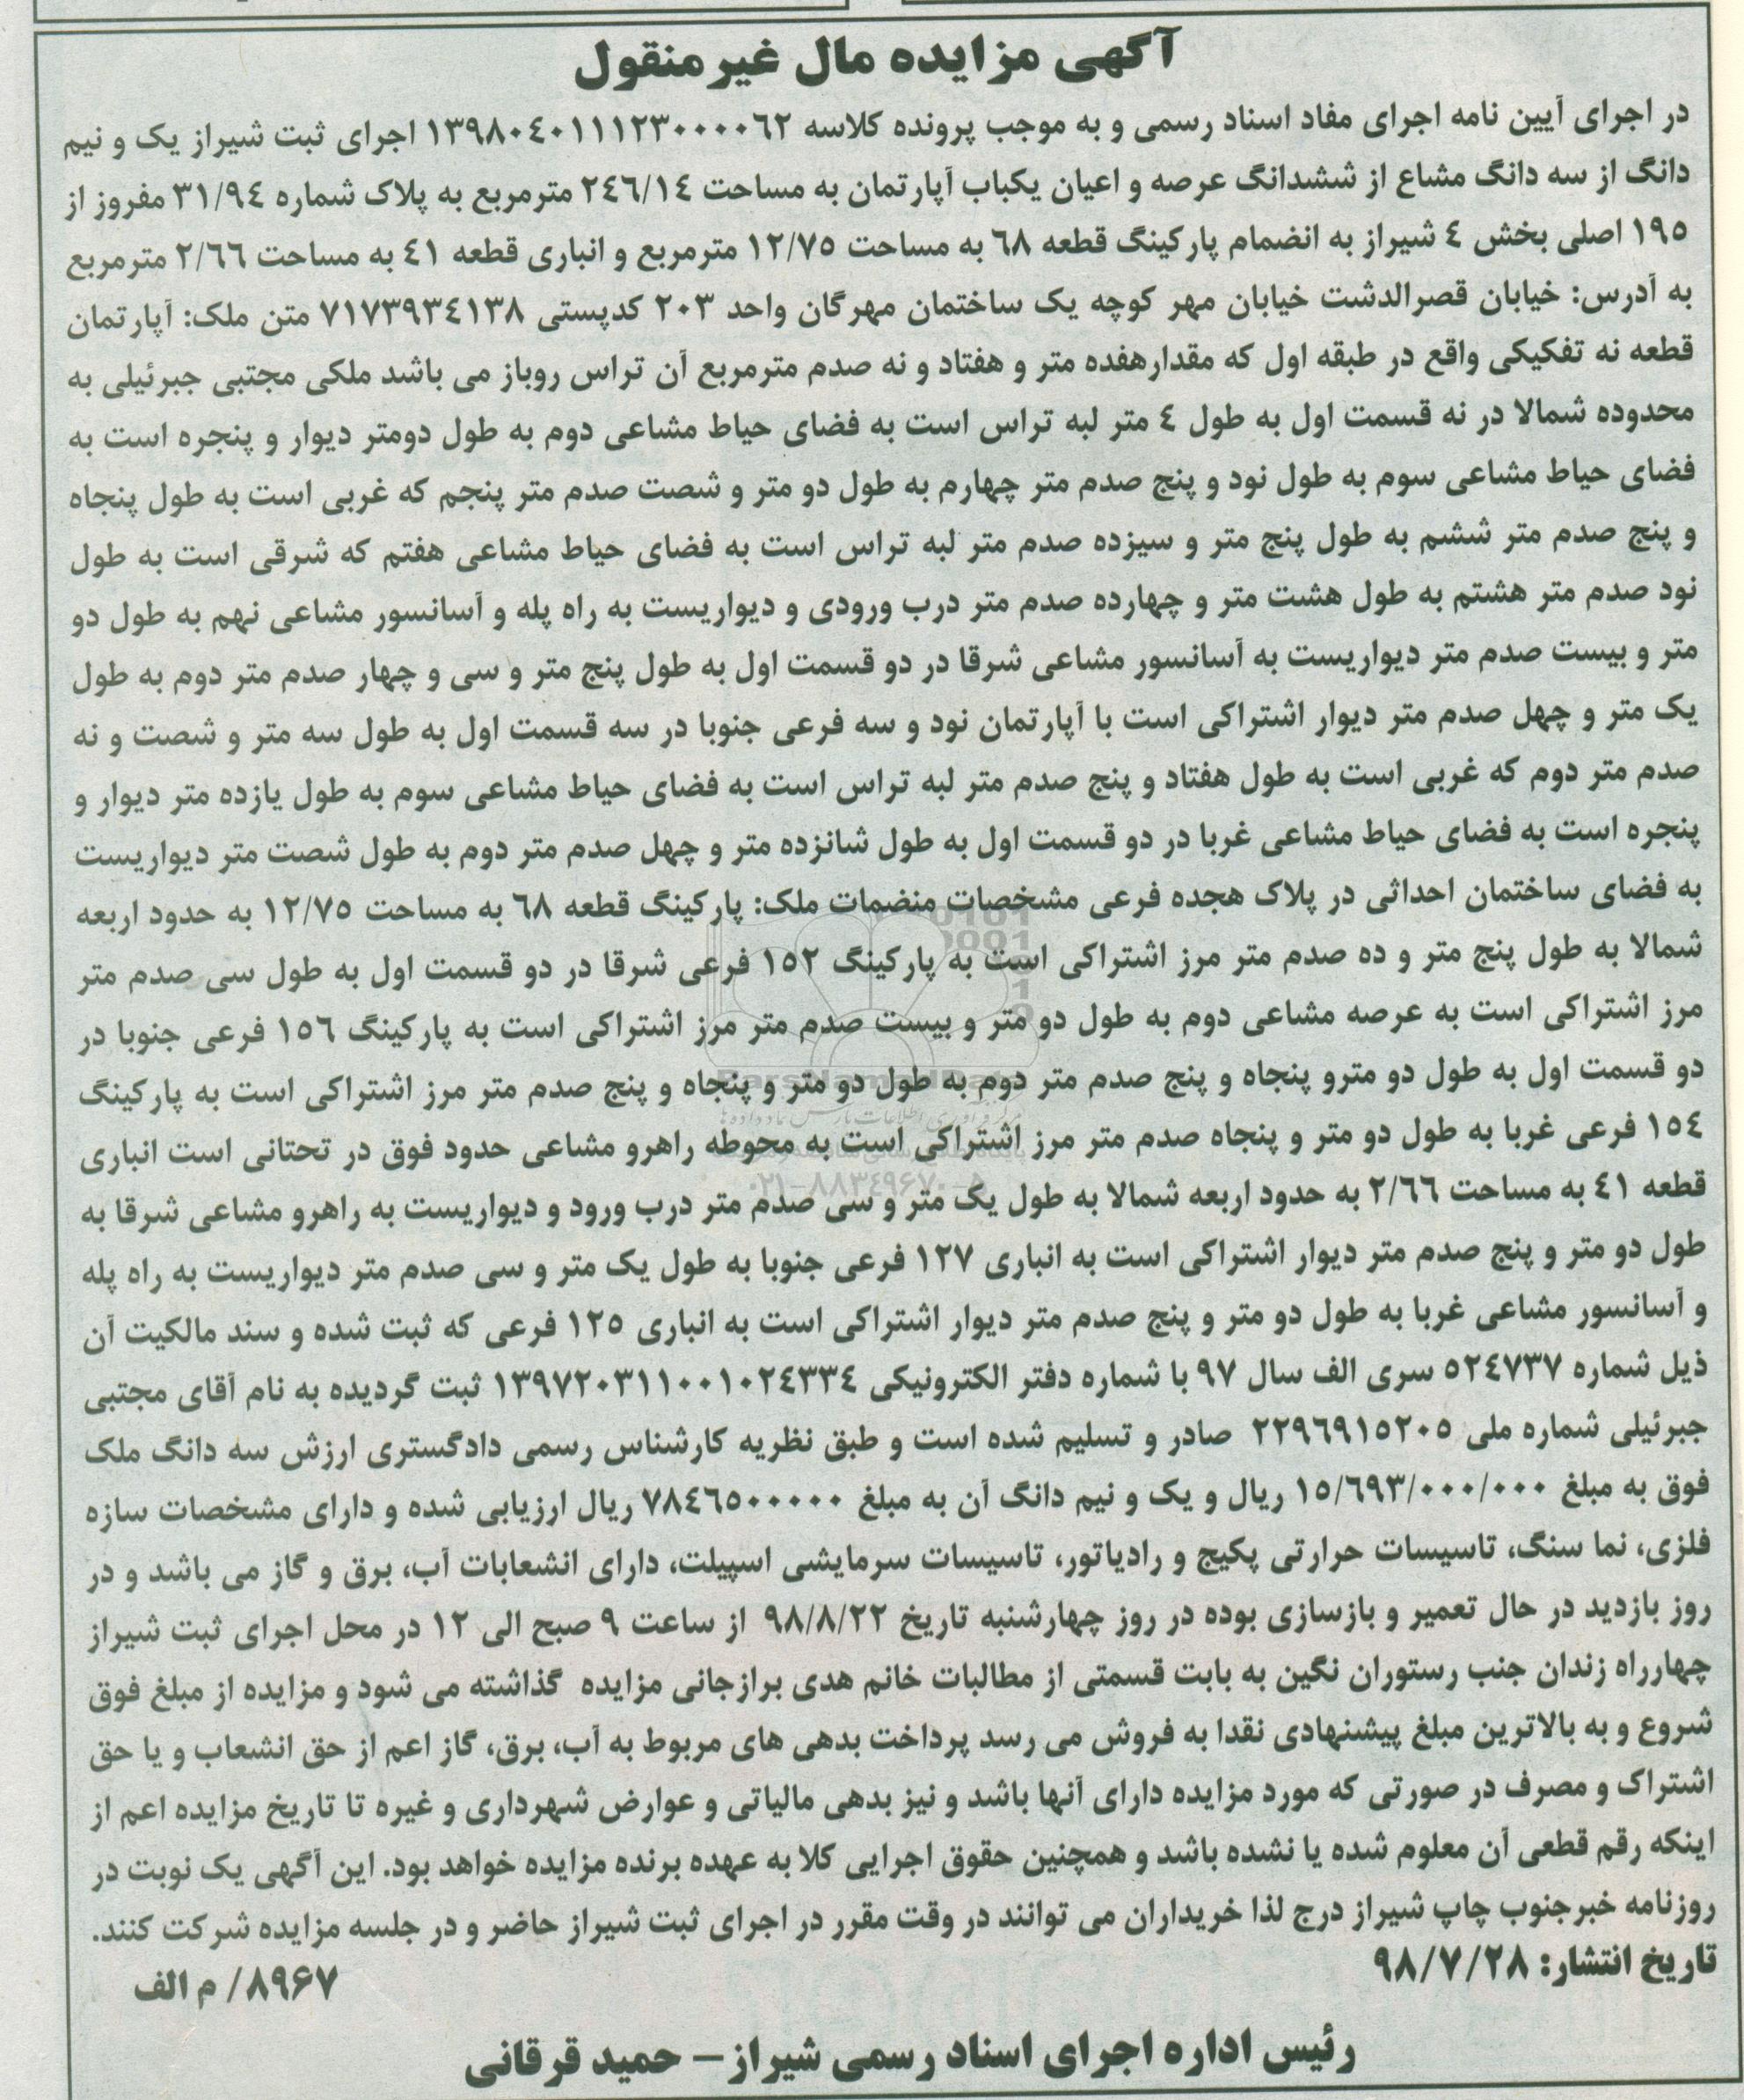 آگهی مزایده مال غیرمنقول
در اجرای آیین نامه اجرای مفاد اسناد رسمی و به موجب پرونده کلاسه ۱۳۹۸۰٤۰۱۱۱۲۳۰۰۰۰٦۲ اجرای ثبت شیراز یک و نیم
دانگ از سه دانگ مشاع از ششدانگ عرصه و اعیان یکباب آپارتمان به مساحت ۲٤٦/۱٤ مترمربع به پلاک شماره ۳۱/۹٤ مفروز از
۱۹٥ اصلی بخش ٤ شیراز به انضمام پارکینگ قطعه ٦۸ به مساحت ۱۲/۷٥ مترمربع و انباری قطعه ٤۱ به مساحت ۲/٦٦ مترمربع
به آدرس: خیابان قصرالدشت خیابان مهر کوچه یک ساختمان مهرگان واحد ۲۰۳ کدپستی ۷۱۷۳۹۳٤۱۳۸ متن ملک: آپارتمان
قطعه نه تفکیکی واقع در طبقه اول که مقدارهفده متر و هفتاد و نه صدم مترمربع آن تراس روباز می باشد ملکی مجتبی جبرئیلی به
محدوده شمالا در نه قسمت اول به طول ٤ متر لبه تراس است به فضای حیاط مشاعی دوم به طول دومتر دیوار و پنجره است به
فضای حیاط مشاعی سوم به طول نود و پنج صدم متر چهارم به طول دو متر و شصت صدم متر پنجم که غربی است به طول پنجاه
و پنج صدم متر ششم به طول پنج متر و سیزده صدم متر لبه تراس است به فضای حیاط مشاعی هفتم که شرقی است به طول
نود صدم متر هشتم به طول هشت متر و چهارده صدم متر درب ورودی و دیواریست به راه پله و آسانسور مشاعی نهم به طول دو
متر و بیست صدم متر دیواریست به آسانسور مشاعی شرقا در دو قسمت اول به طول پنج متر و سی و چهار صدم متر دوم به طول
یک متر و چهل صدم متر دیوار اشتراکی است با آپارتمان نود و سه فرعی جنوبا در سه قسمت اول به طول سه متر و شصت و نه
صدم متر دوم که غربی است به طول هفتاد و پنج صدم متر لبه تراس است به فضای حیاط مشاعی سوم به طول یازده متر دیوار و
پنجره است به فضای حیاط مشاعی غربا در دو قسمت اول به طول شانزده متر و چهل صدم متر دوم به طول شصت متر دیواریست
به فضای ساختمان احداثی در پلاک هجده فرعی مشخصات منضمات ملک: پارکینگ قطعه ٦۸ به مساحت ۱۲/۷٥ به حدود اربعه
شمالا به طول پنج متر و ده صدم متر مرز اشتراکی است به پارکینگ ۱٥۲ فرعی شرقا در دو قسمت اول به طول سی صدم متر
مرز اشتراکی است به عرصه مشاعی دوم به طول دو متر و بیست صدم متر مرز اشتراکی است به پارکینگ ۱٥٦ فرعی جنوبا در
دو قسمت اول به طول دو مترو پنجاه و پنج صدم متر دوم به طول دو متر و پنجاه و پنج صدم متر مرز اشتراکی است به پارکینگ
۱٥٤ فرعی غربا به طول دو متر و پنجاه صدم متر مرز اشتراکی است به محوطه راهرو مشاعی حدود فوق در تحتانی است انباری
قطعه ٤۱ به مساحت ۲/٦٦ به حدود اربعه شمالا به طول یک متر و سی صدم متر درب ورود و دیواریست به راهرو مشاعی شرقا به
طول دو متر و پنج صدم متر دیوار اشتراکی است به انباری ۱۲۷ فرعی جنوبا به طول یک متر و سی صدم متر دیواریست به راه پله
و آسانسور مشاعی غربا به طول دو متر و پنج صدم متر دیوار اشتراکی است به انباری ۱۲٥ فرعی که ثبت شده و سند مالکیت آن
ذیل شماره ٥۲٤۷۳۷ سری الف سال ۹۷ با شماره دفتر الکترونیکی ۱۳۹۷۲۰۳۱۱۰۰۱۰۲٤۳۳٤ ثبت گردیده به نام آقای مجتبی
جبرئیلی شماره ملی ۲۲۹٦۹۱٥۲۰٥ صادر و تسلیم شده است و طبق نظریه کارشناس رسمی دادگستری ارزش سه دانگ ملک
فوق به مبلغ ۱٥/٦۹۳/۰۰۰/۰۰۰ ریال و یک و نیم دانگ آن به مبلغ ۷۸٤٦٥۰۰۰۰۰ ریال ارزیابی شده و دارای مشخصات سازه
فلزی، نما سنگ، تاسیسات حرارتی پکیج و رادیاتور، تاسیسات سرمایشی اسپیلت، دارای انشعابات آب، برق و گاز می باشد و در
روز بازدید در حال تعمیر و بازسازی بوده در روز چهارشنبه تاریخ ۹۸/۸/۲۲ از ساعت ۹ صبح الی ۱۲ در محل اجرای ثبت شیراز
چهارراه زندان جنب رستوران نگین به بابت قسمتی از مطالبات خانم هدی برازجانی مزایده گذاشته می شود و مزایده از مبلغ فوق
شروع و به بالاترین مبلغ پیشنهادی نقدا به فروش می رسد پرداخت بدهی های مربوط به آب، برق، گاز اعم از حق انشعاب و یا حق
اشتراک و مصرف در صورتی که مورد مزایده دارای آنها باشد و نیز بدهی مالیاتی و عوارض شهرداری و غیره تا تاریخ مزایده اعم از
اینکه رقم قطعی آن معلوم شده یا نشده باشد و همچنین حقوق اجرایی کلا به عهده برنده مزایده خواهد بود. این آگهی یک نوبت در
روزنامه خبرجنوب چاپ شیراز درج لذا خریداران می توانند در وقت مقرر در اجرای ثبت شیراز حاضر و در جلسه مزایده شرکت کنند.
تاریخ انتشار: ۹۸/۷/۲۸
۸۹۶۷/ م الف
رئیس اداره اجرای اسناد رسمی شیراز – حمید قرقانی